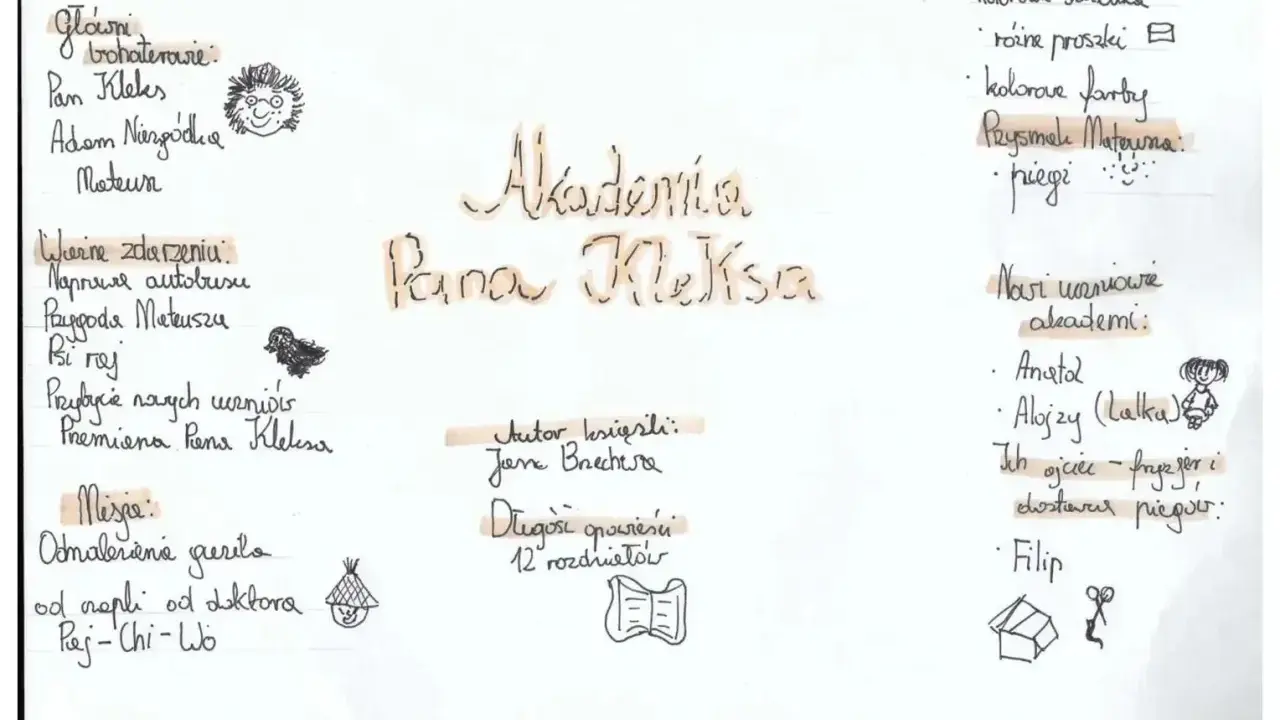 Główni
bohaterowie:
Pan Kleks
Adam Niezgódka
Mateusz
Ważne zdarzenia:
Naprawa autobusu
Przygoda Mateusza
Psi raj
Przybycie nowych uczniów
Przemiana Pana Kleksa
Misja:
Odnalezienie guzika
od czapki od doktora
Paj-Chi-Wo
Akademia
Pana Kleksa
Autor książki:
Jan Brzechwa
Długość opowieści
12 rozdziałów
różne proszki
kolorowe farby
Przysmak Mateusza:
piegi
Nowi uczniowie
akademi:
Anatol
Alojzy (Lalka)
Ich ojciec - fryzjer i
dostawca piegów:
Filip